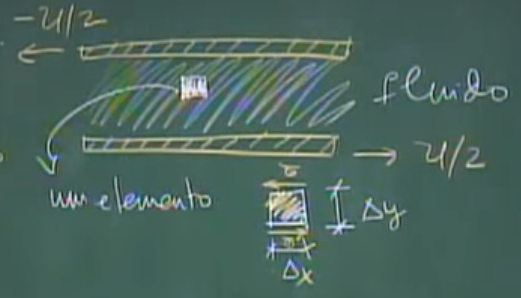 -U/2
fluido
U/2
um elemento
τ
Δy
Δx